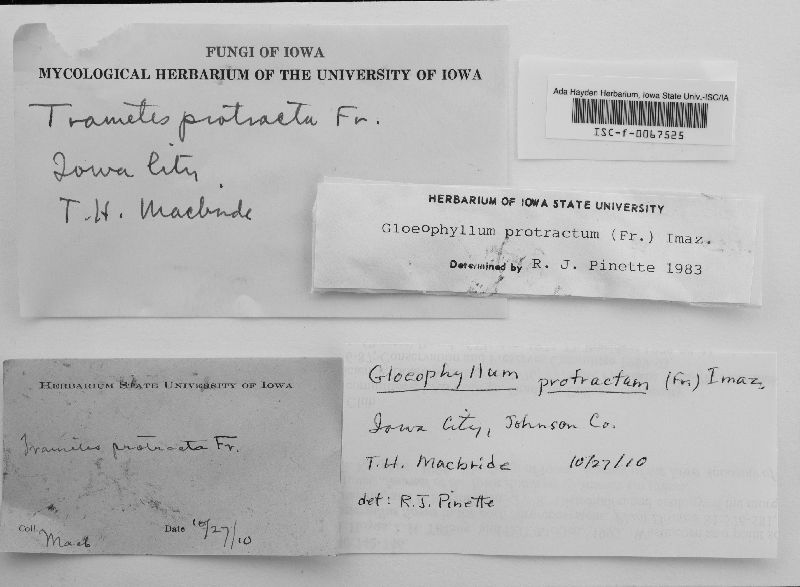 FUNGI OF IOWA
MYCOLOGICAL HERBARIUM OF THE UNIVERSITY OF IOWA
Trametes protracta Fr.
Iowa City
T.H. Macbride
Ada Hayden Herbarium, Iowa State Univ.-ISC/IA
ISC-f-0067525
HERBARIUM OF IOWA STATE UNIVERSITY
Gloeophyllum protractum (Fr.) Imaz.
Determined by R. J. Pinette 1983
HERBARIUM STATE UNIVERSITY OF IOWA
Trametes protracta Fr.
Coll. Macb Date 10/27/10
Gloeophyllum protractum (Fr.) Imaz.
Iowa City, Johnson Co.
T.H. Macbride 10/27/10
det: R.J. Pinette